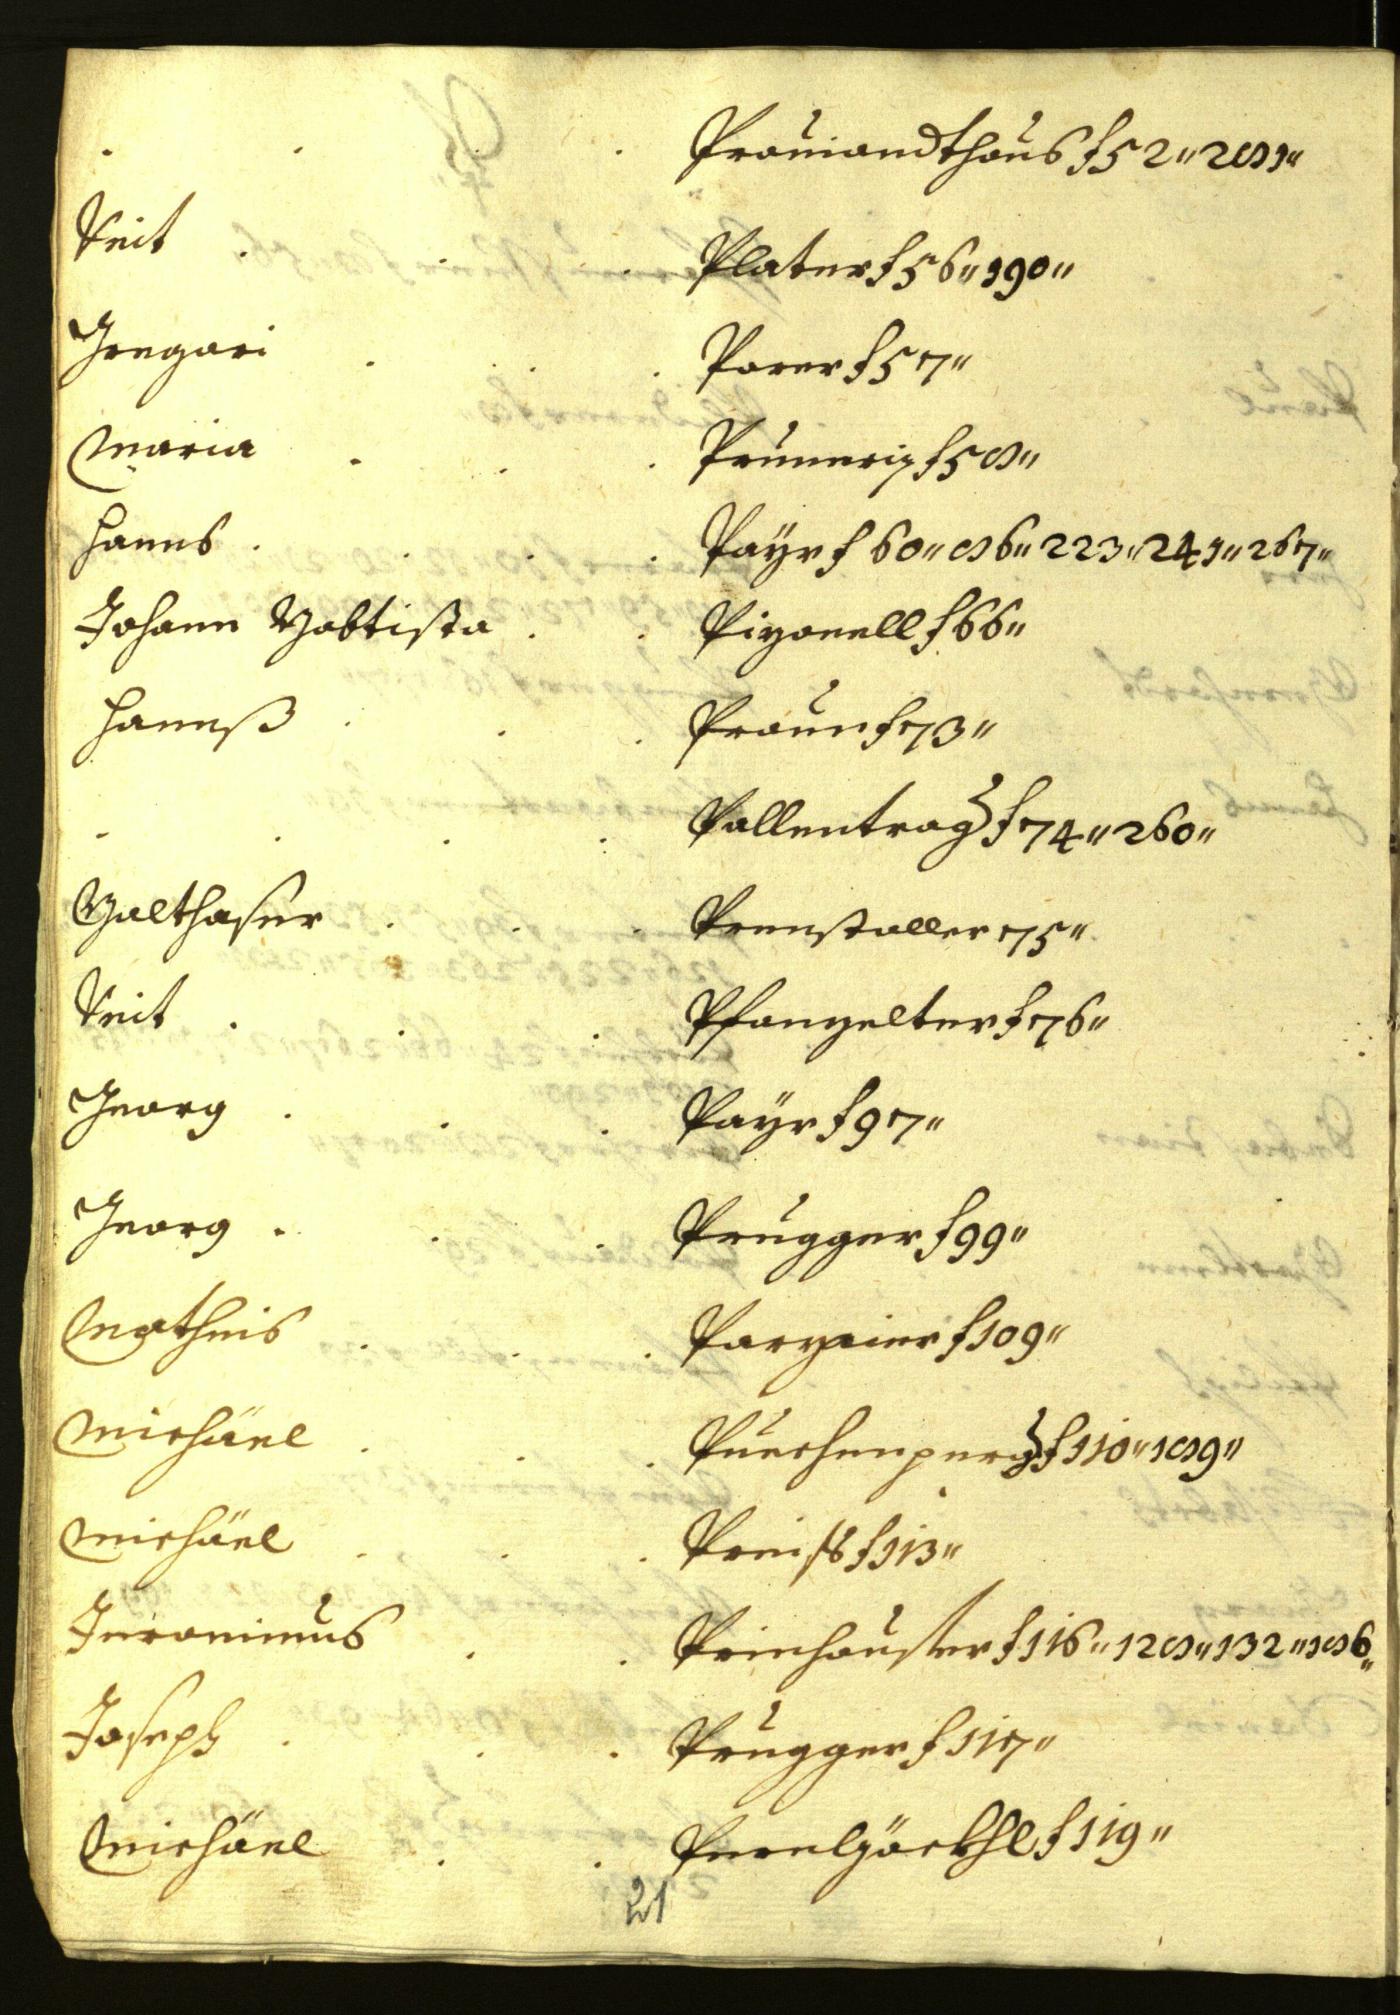 . . . . Prauiandthaus f 52 " 281 "
Veit . . . Plater f 56 " 190 "
Gregori . . . Porer f 57 "
Maria . . . Prunerin f 58 "
Hanns . . . . Payr f 60 " 86 " 223 " 241 " 267 "
Johann Babtista . . Pizonell f 66 "
Hannß . . . Praun f 73 "
. . . . Pallentrag f 74 " 260 "
Balthasar . . . Prenstaller 75 "
Veit . . . Pfanzelter f 76 "
Georg . . . Payr f 97 "
Georg . . . Prugger f 99 "
Matheis . . . f 109 "
Michäel . . . Puechenperg f 110 " 189 "
Michäel . . . Preiss f 113 "
Jeronimus . . Preinhauster f 116 " 128 " 132 " 186 "
Joseph . . . Prugger f 117 "
Michäel . . f 119 "
21